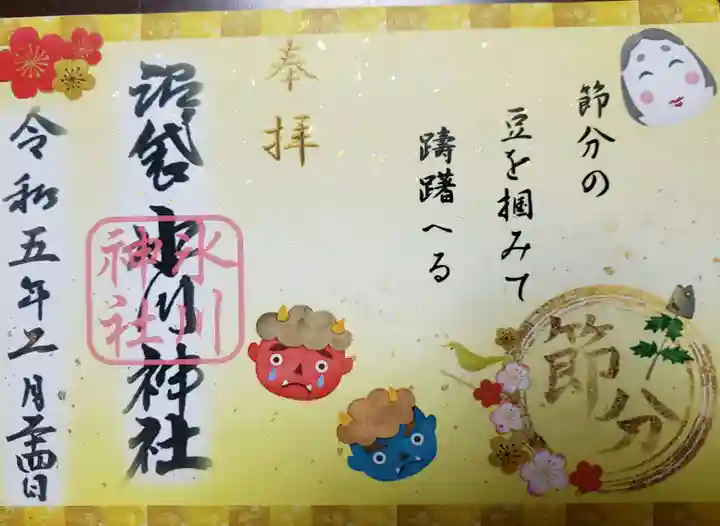 節分の
豆を掴みて
躊躇へる
節分
奉拝
沼袋 氷川神社
氷川
神社
令和五年二月二十四日